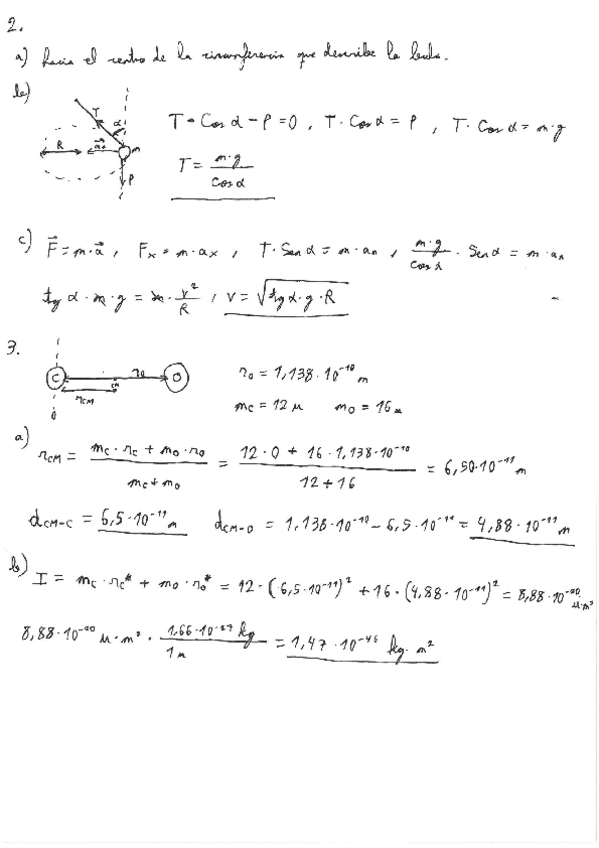 2.
a) hacia el centro de la circunferencia que describe la bola.
b)
T α
R a⃗ₙ m
P
T · Cos α - P = 0 , T · Cos α = P , T · Cos α = m · g
T = m · g / Cos α
c) F⃗ = m · a⃗ , Fx = m · ax , T · Sen α = m · an , m · g / Cos α · Sen α = m · an
tg α · m · g = m · v² / R , v = √(tg α · g · R)
3.
C r₀ CM O
rCM
0
r₀ = 1,138 · 10⁻¹⁰ m
mc = 12 u mo = 16 u
a)
rCM = (mc · rc + mo · ro) / (mc + mo) = (12 · 0 + 16 · 1,138 · 10⁻¹⁰) / (12 + 16) = 6,50 · 10⁻¹¹ m
dCM-C = 6,5 · 10⁻¹¹ m dCM-O = 1,138 · 10⁻¹⁰ - 6,5 · 10⁻¹¹ = 4,88 · 10⁻¹¹ m
b) I = mc · rc* + mo · ro* = 12 · (6,5 · 10⁻¹¹)² + 16 · (4,88 · 10⁻¹¹)² = 8,88 · 10⁻²⁰ u · m²
8,88 · 10⁻²⁰ u · m² · 1,66 · 10⁻²⁷ kg / 1 u = 1,47 · 10⁻⁴⁶ kg · m²